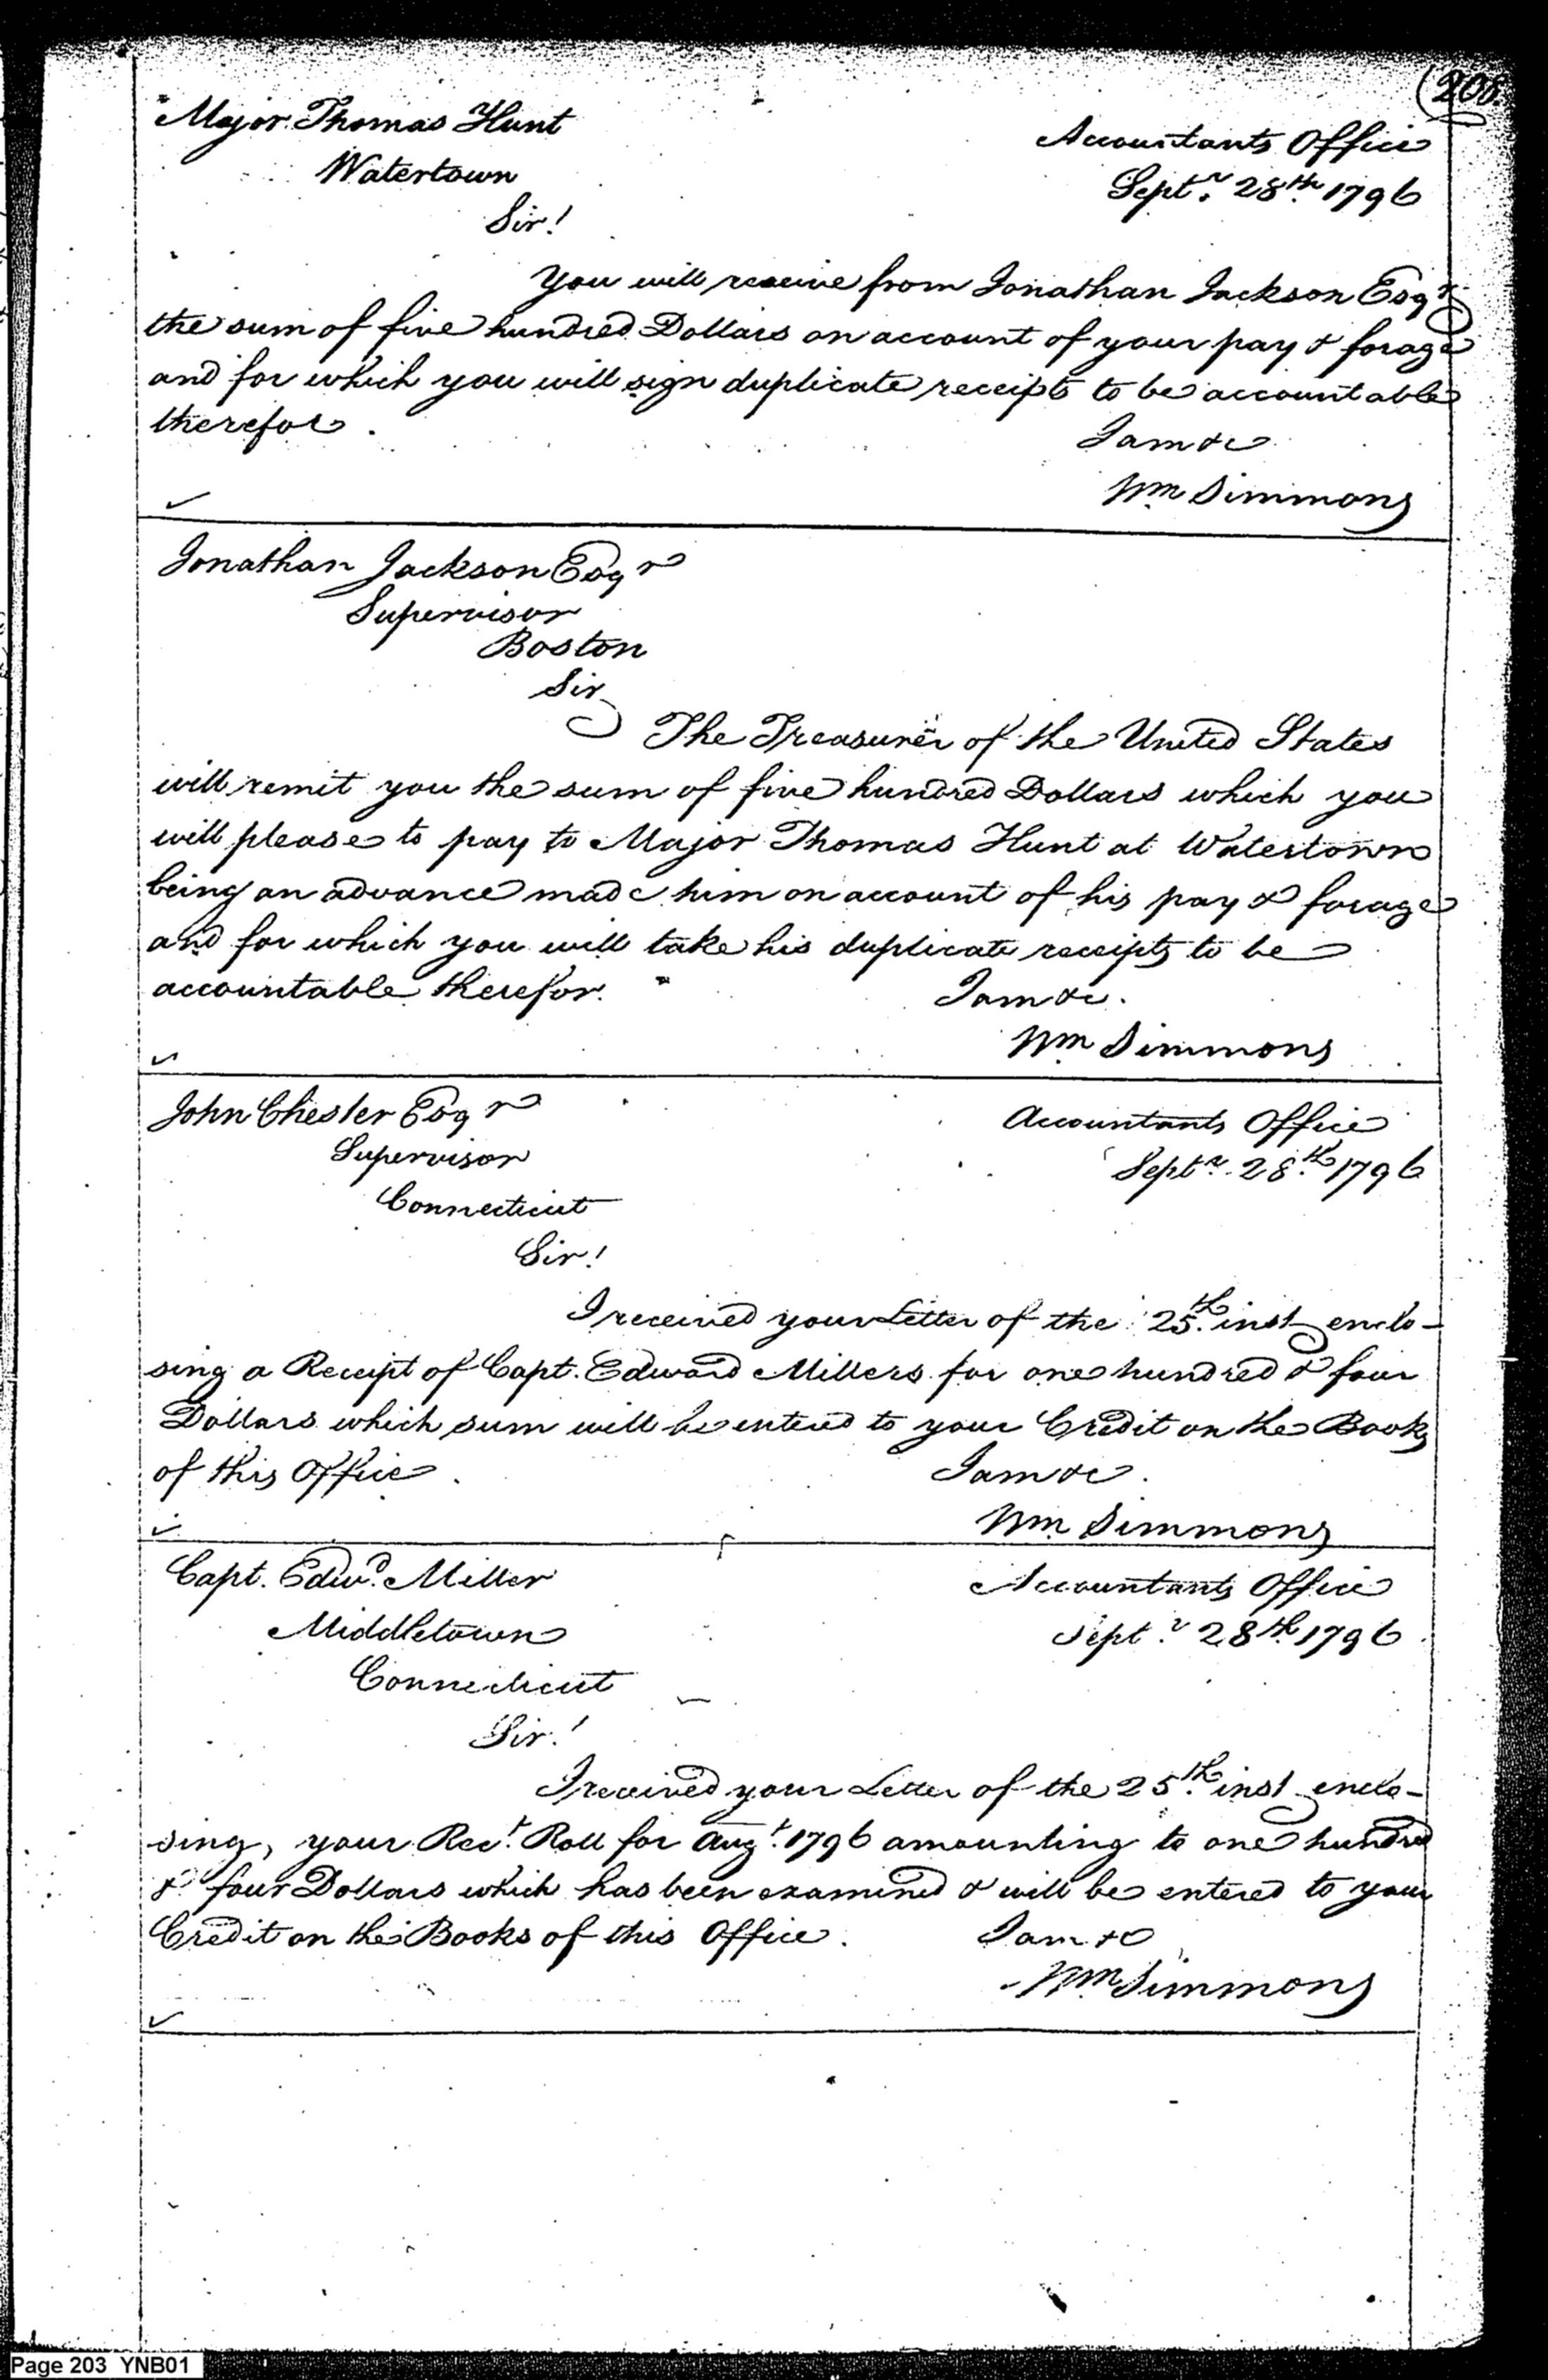 (208.
Major Thomas Hunt
Accountants Office
Watertown
Septr. 28th. 1796
Sir!
You will receive from Jonathan Jackson Esqr
the sum of five hundred Dollars on account of your pay & forage
and for which you will sign duplicate receipts to be accountable
therefor.
I am &c
Wm Simmons
Jonathan Jackson Esqr
Supervisor
Boston
Sir
The Treasurer of the United States
will remit you the sum of five hundred Dollars which you
will please to pay to Major Thomas Hunt at Watertown
being an advance made him on account of his pay & forage
and for which you will take his duplicate receipts to be
accountable therefor.
I am &c.
Wm Simmons
John Chester Esqr
Accountants Office
Supervisor
Septr. 28th. 1796
Connecticut
Sir!
I received your Letter of the 25th. inst enclo-
sing a Receipt of Capt. Edward Millers for one hundred & four
Dollars which sum will be entered to your Credit on the Books
of this Office.
I am &c.
Wm Simmons
Capt. Edwd. Miller
Accountants Office
Middletown
Septr. 28th. 1796
Connecticut
Sir!
I received your Letter of the 25th. inst enclo-
sing, your Rect. Roll for Augt. 1796 amounting to one hundred
& four Dollars which has been examined & will be entered to your
Credit on the Books of this Office.
I am &c
Wm Simmons
Page 203 YNB01